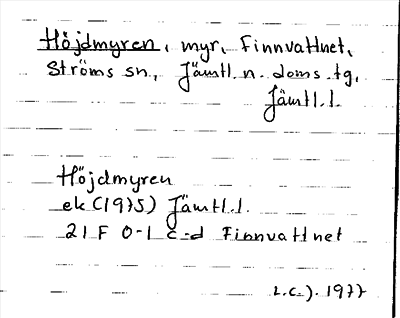 Höjdmyren, myr, Finnvattnet,
Ströms sn., Jämtl. n. doms. tg,
Jämtl. l.
Höjdmyren
ek (1975) Jämtl. l.
21 F 0-1 c-d Finnvattnet
L.C.J. 1977